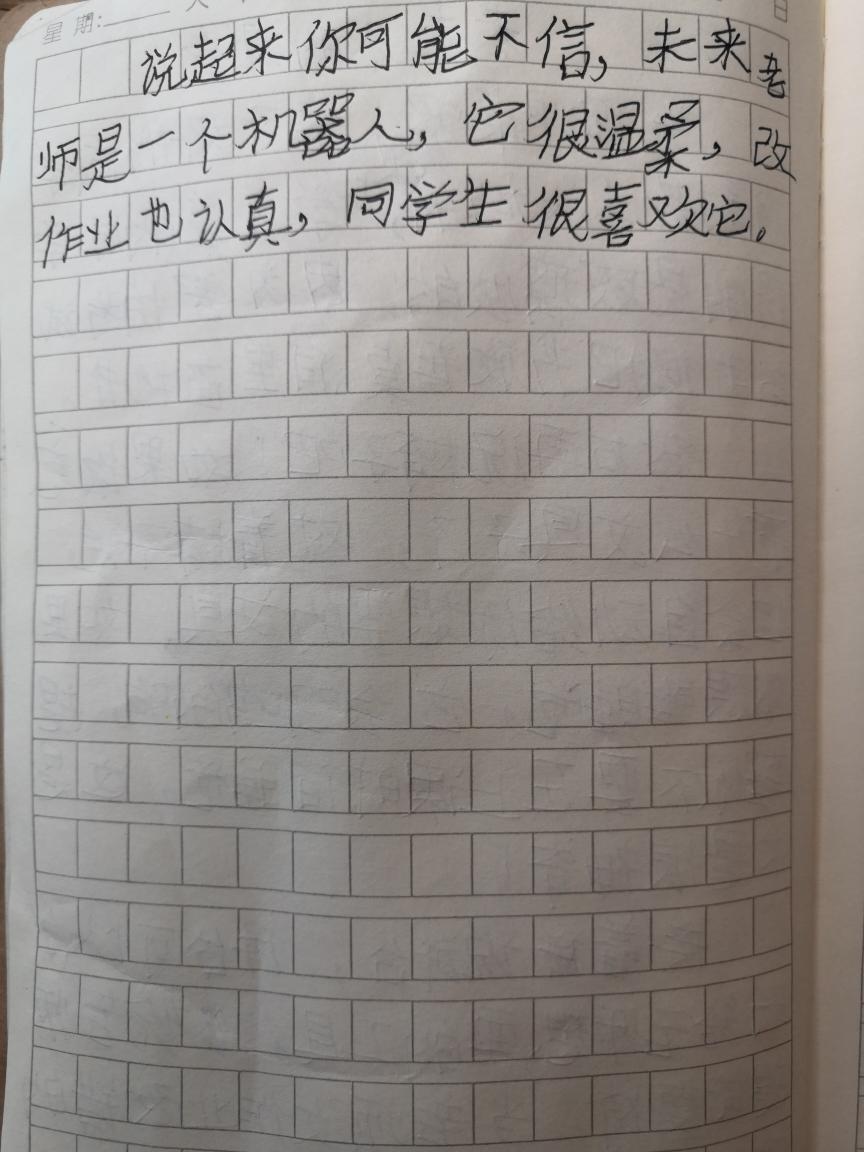 星 期:
说超来你可能不信，未来老
师是一个机器人，它很温柔，改
作业也认真，同学生很喜欢它。